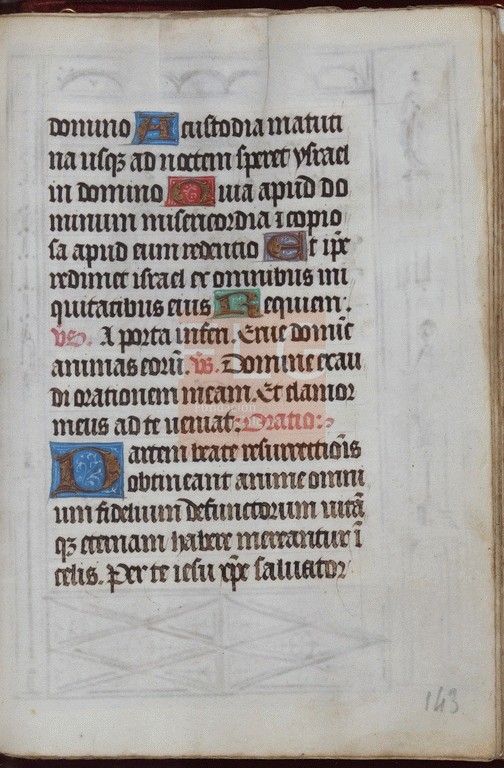 domino A custodia matuti
na usqꝫ ad noctem speret ysrael
in domino Quia apud do
minum misericordia ⁊ copio
sa apud eum redentio Et ip̄e
redimet israel ex omnibus ini
quitatibus eius Requiem.
vs. A porta inferi. Erue domīe
animas eorū. vs. Domine exau
di orationem meam. Et clamor
meus ad te veniat. Oratio:
Partem beate resurrectiōis
obtineant anime omni
um fidelium defunctorum vitā
qꝫ eternam habere mereantur ī
celis. Per te iesu xp̄e saluator
Fundación
143